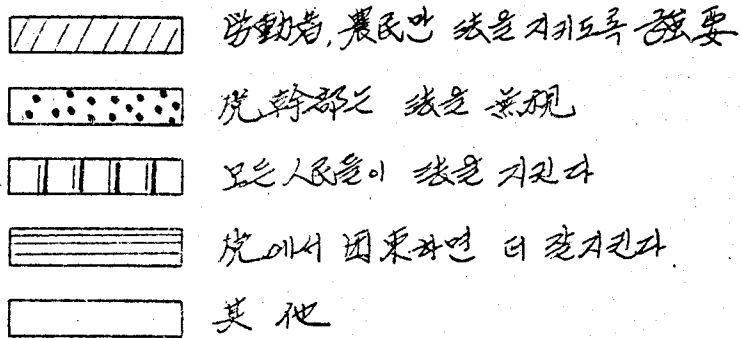 勞動者, 農民만 法을 지키도록 強要
党幹部는 法을 無視
모든 人民들이 法을 지킨다
党에서 団束하면 더 잘지킨다
其他